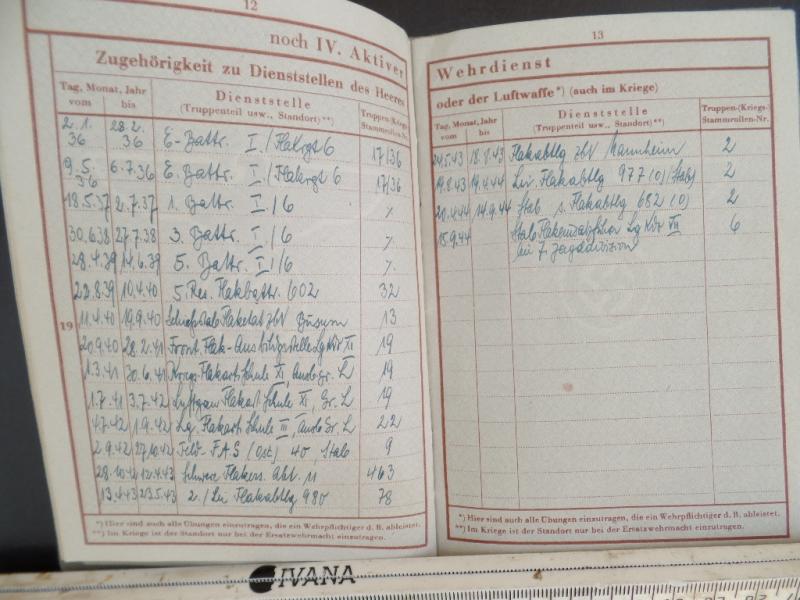 12
noch IV. Aktiver
Zugehörigkeit zu Dienststellen des Heeres
Tag, Monat, Jahr
vom bis
Dienststelle
(Truppenteil usw., Standort)**)
Truppen-(Kriegs-)
Stammrollen-Nr.
2.1.36 28.2.36 E-Battr. I./Flakrgt 6 17/36
9.5.36 6.7.36 E. Battr. I./Flakrgt 6 17/36
18.5.37 2.7.37 1. Battr. I/6 %
30.6.38 27.7.38 3. Battr. I/6 %
28.4.39 14.6.39 5. Battr. I/6 %
22.8.39 10.4.40 5. Res. Flakbattr. 602 32
19
11.4.40 19.9.40 zbV Büsum 13
20.9.40 28.2.41 Front. Flak-Ausbildgsstelle Lg Kdo XI 19
1.3.41 30.6.41 Kriegs-Flakart. Schule XI, Ausb. Gr. L 19
1.7.41 3.7.42 Luftgau Flakart Schule XI, Gr. L 19
4.7.42 1.9.42 Lg. Flakart Schule III, Ausb Gr. L 22
2.9.42 27.10.42 Feld-FAS (Ost) 40, Stab 9
28.10.42 12.4.43 Schwere Flakers. Abt. 11 463
13.4.43 23.5.43 2./Lei Flakabtlg 980 78
*) Hier sind auch alle Übungen einzutragen, die ein Wehrpflichtiger d. B. ableistet.
**) Im Kriege ist der Standort nur bei der Ersatzwehrmacht einzutragen.
13
Wehrdienst
oder der Luftwaffe*) (auch im Kriege)
Tag, Monat, Jahr
vom bis
Dienststelle
(Truppenteil usw., Standort)**)
Truppen-(Kriegs-)
Stammrollen-Nr.
24.5.43 18.8.43 Flakabtlg zbV Mannheim 2
19.8.43 19.4.44 Lei. Flakabtlg 977 (o)/Stab) 2
20.4.44 14.9.44 Stab s. Flakabtlg 682 (o) 2
15.9.44 Stab Flakeinsatzführer Lg Kdo VII 6
bei 7. Jagddivision
*) Hier sind auch alle Übungen einzutragen, die ein Wehrpflichtiger d. B. ableistet.
**) Im Kriege ist der Standort nur bei der Ersatzwehrmacht einzutragen.
IVANA